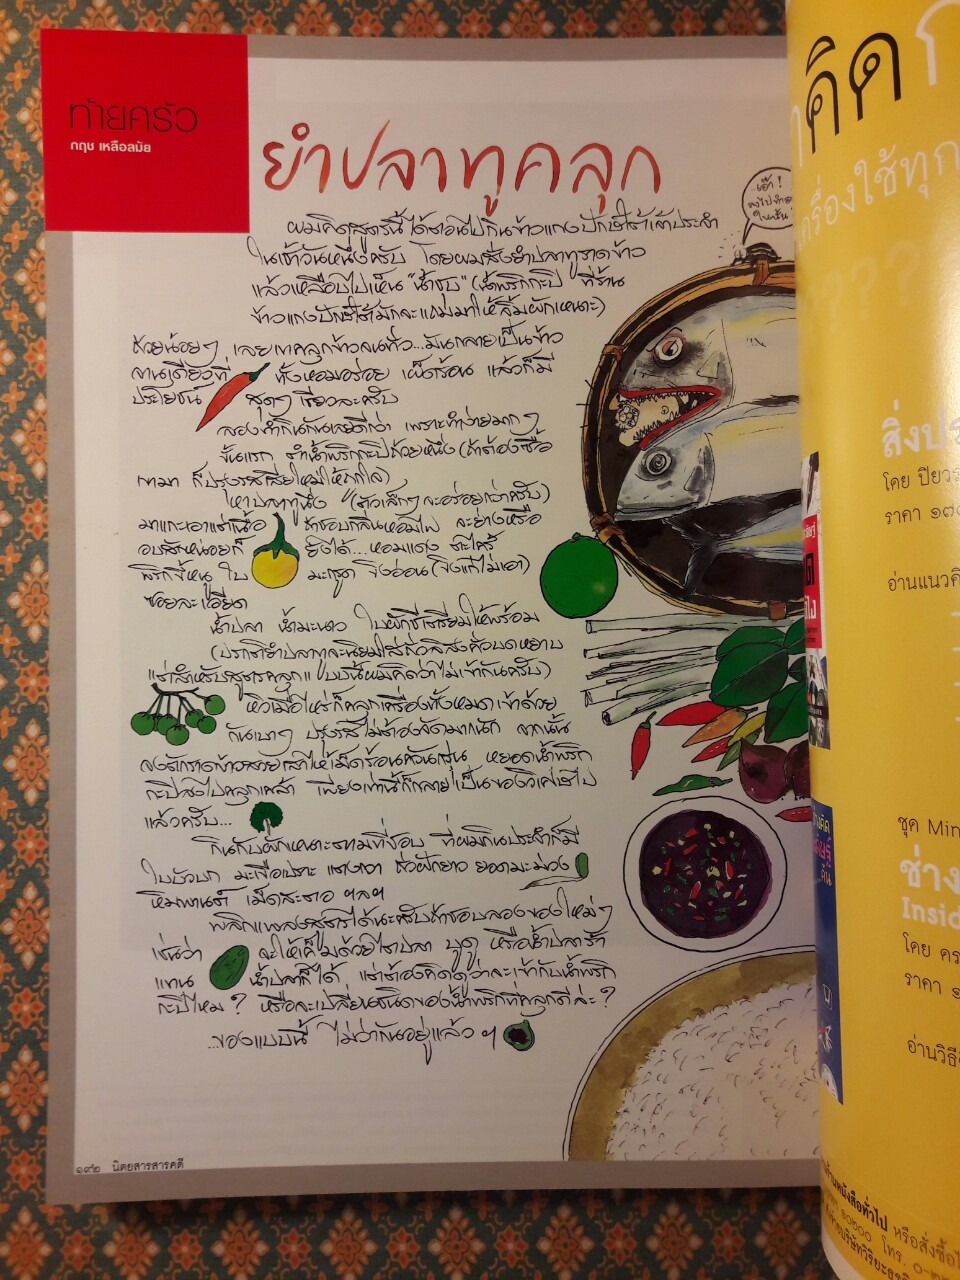 ท้ายครัว
กฤช เหลือสมัย
ยำปลาทูคลุก
เอ๊า!
ผมคิดสูตรนี้ได้ตอนไปกินข้าวแกงปักษ์ใต้เจ้าประจำ
ในเช้าวันหนึ่งครับ โดยผมสั่งยำปลาทูราดข้าว
แล้วเหลือบไปเห็น "น้ำชุบ" (น้ำพริกกะปิ ที่ร้าน
ข้าวแกงปักษ์ใต้มักจะแถมมาให้จิ้มผักเหนาะ)
ถ้วยน้อยๆ เลยเทคลุกข้าวจนทั่ว...มันกลายเป็นข้าว
จานเดียวที่ ทั้งหอมอร่อย เผ็ดร้อน แล้วก็มี
ประโยชน์ สุดๆ เชียวละครับ
ลองทำกินกันเลยดีกว่า เพราะทำง่ายมากๆ
ขั้นแรก ตำน้ำพริกกะปิถ้วยหนึ่ง (ถ้าต้องซื้อ
เขามา ก็ปรุงรสเสียใหม่ให้ถูกใจ)
หาปลาทูนึ่ง (ตัวเล็กๆ จะอร่อยกว่าครับ)
มาแกะเอาแต่เนื้อ ถ้าชอบกลิ่นหอมไฟ จะย่างหรือ
อบสักหน่อยก็ ยังได้...หอมแดง ตะไคร้
พริกขี้หนู ใบ มะกรูด ขิงอ่อน (ขิงแก่ไม่เอา)
ซอยละเอียด
น้ำปลา น้ำมะนาว ใบผักชีเตรียมให้พร้อม
(ปรกติยำปลาทูจะนิยมใส่ถั่วลิสงคั่วบดหยาบ
แต่สำหรับสูตรคลุกแบบนี้ผมคิดว่าไม่เข้ากันครับ)
หิวเมื่อไหร่ก็คลุกเครื่องทั้งหมดเข้าด้วย
กันเบาๆ ปรุงรสไม่ต้องจัดมากนัก จากนั้น
จงตักราดข้าวสวยเม็ดร้อนควันฉุย หยอดน้ำพริก
กะปิลงไปคลุกเคล้า เพียงเท่านี้ก็กลายเป็นของวิเศษไป
แล้วครับ...
กินกับผักเหนาะตามที่ชอบ ที่ผมกินประจำก็มี
ใบบัวบก มะเขือเปราะ แตงกวา ถั่วฝักยาว ยอดมะม่วง
หิมพานต์ เม็ดสะตอ ฯลฯ
พลิกแพลงสูตรได้นะครับถ้าชอบลองของใหม่ๆ
เช่นว่า จะให้เค็มด้วยไตปลา บูดู หรือน้ำปลาร้า
แทน น้ำปลาก็ได้ แต่ต้องคิดดูว่าจะเข้ากับน้ำพริก
กะปิไหม? หรือจะเปลี่ยนชนิดของน้ำพริกที่คลุกดีล่ะ?
...ของแบบนี้ ไม่ว่ากันอยู่แล้วฯ
๑๙๒ นิตยสารสารคดี
คิด
เครื่องใช้ทุก
????
โดย ปิยวร
อ่านแนวคิ
ชุด Min
ช่าง
Insid
โดย คร
ราคา ๑
อ่านวิธี
ร้านหนังสือทั่วไป หรือสั่งซื้อ
๑๐๒๐๐ โทร. ๐-๒